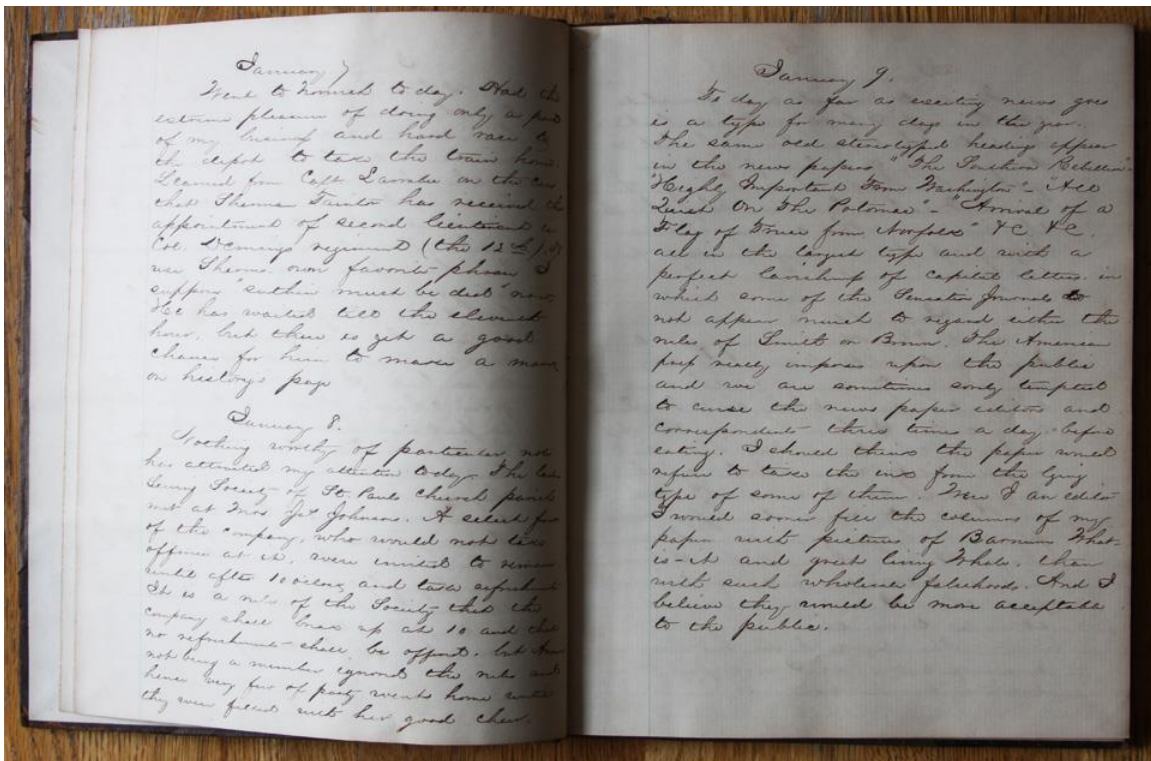 January 7
Went to Norwich to day. Had the
extreme pleasure of doing only a part
of my business and hard race to
the depot to take the train home.
Learned from Capt. on the cars
that Thomas has received the
appointment of second lieutenant in
Col. Demings regiment (the 12th). To
use own favorite phrase I
suppose "suthin must be did" now.
He has waited till the eleventh
hour, but there is yet a good
chance for him to make a mark
on historys page
January 8.
Nothing worthy of particular note
has attracted my attention today. The
Sewing Society of St. Pauls Church parish
met at Mrs Johnsons. A select few
of the company, who would not take
offence at it, were invited to remain
until after 10 oclock and take refreshments
It is a rule of the Society that the
company shall break up at 10 and that
no refreshments shall be offered, but
not being a member ignored the rules and
hence very few of party went home until
they were filled with her good cheer.
January 9.
To day as far as exciting news goes
is a type for many days in the year.
The same old stereotyped headings appear
in the news papers "The Southern Rebellion"
"Highly Important From Washington" - "All
Quiet On The Potomac" - "Arrival of a
Flag of Truce from Norfolk" &C. &C.
all in the largest type and with a
perfect lavishing of capital letters, in
which some of the Sensation Journals do
not appear much to regard either the
rules of Smith or Brown. The American
press really imposes upon the public
and we are sometimes sorely tempted
to curse the news paper editors and
correspondents three times a day before
eating. I should think the paper would
refuse to take the ink from the lying
type of some of them. Were I an editor
I would sooner fill the columns of my
paper with pictures of Barnums What-
is-it and great living Whale, than
with such wholesale falsehoods. And I
believe they would be more acceptable
to the public.